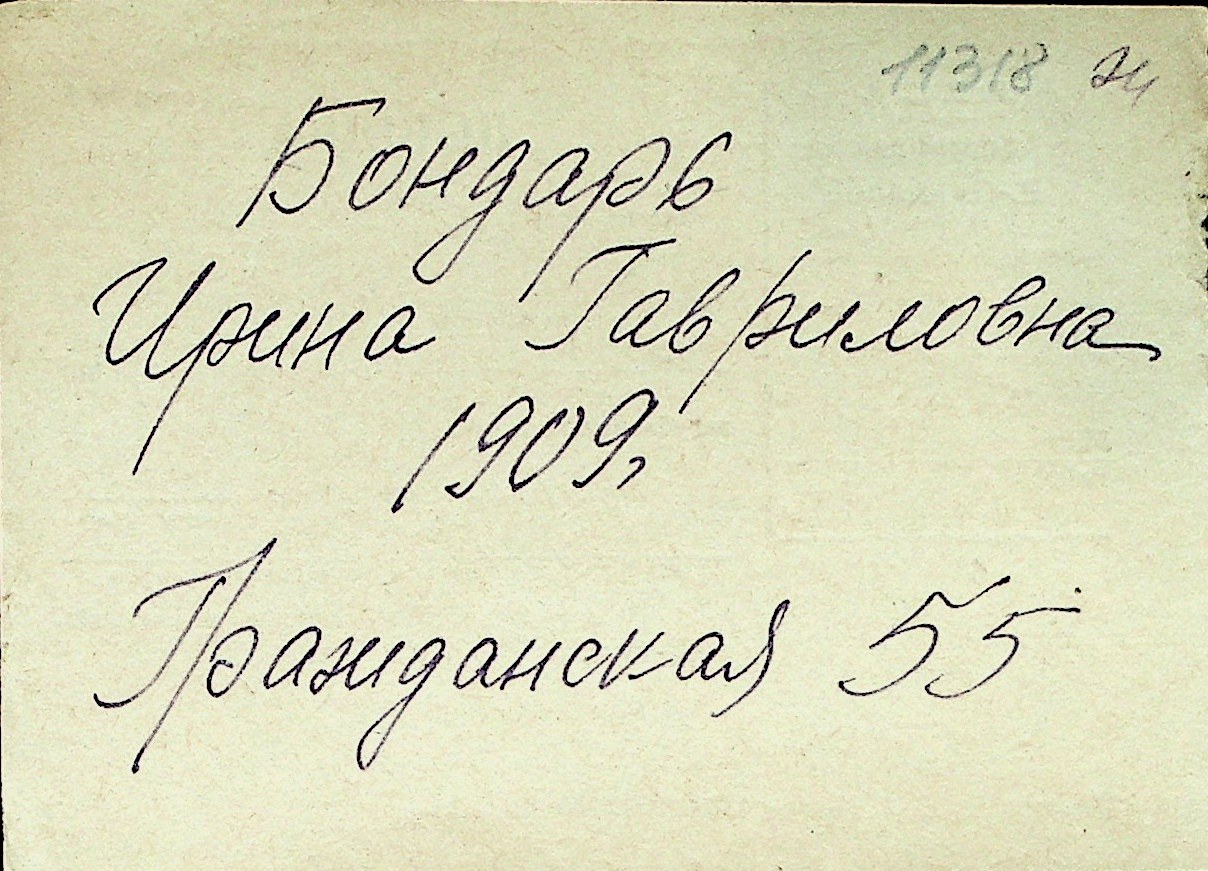 11318
Бондарь
Ирина Гавриловна
1909г
Гражданская 55